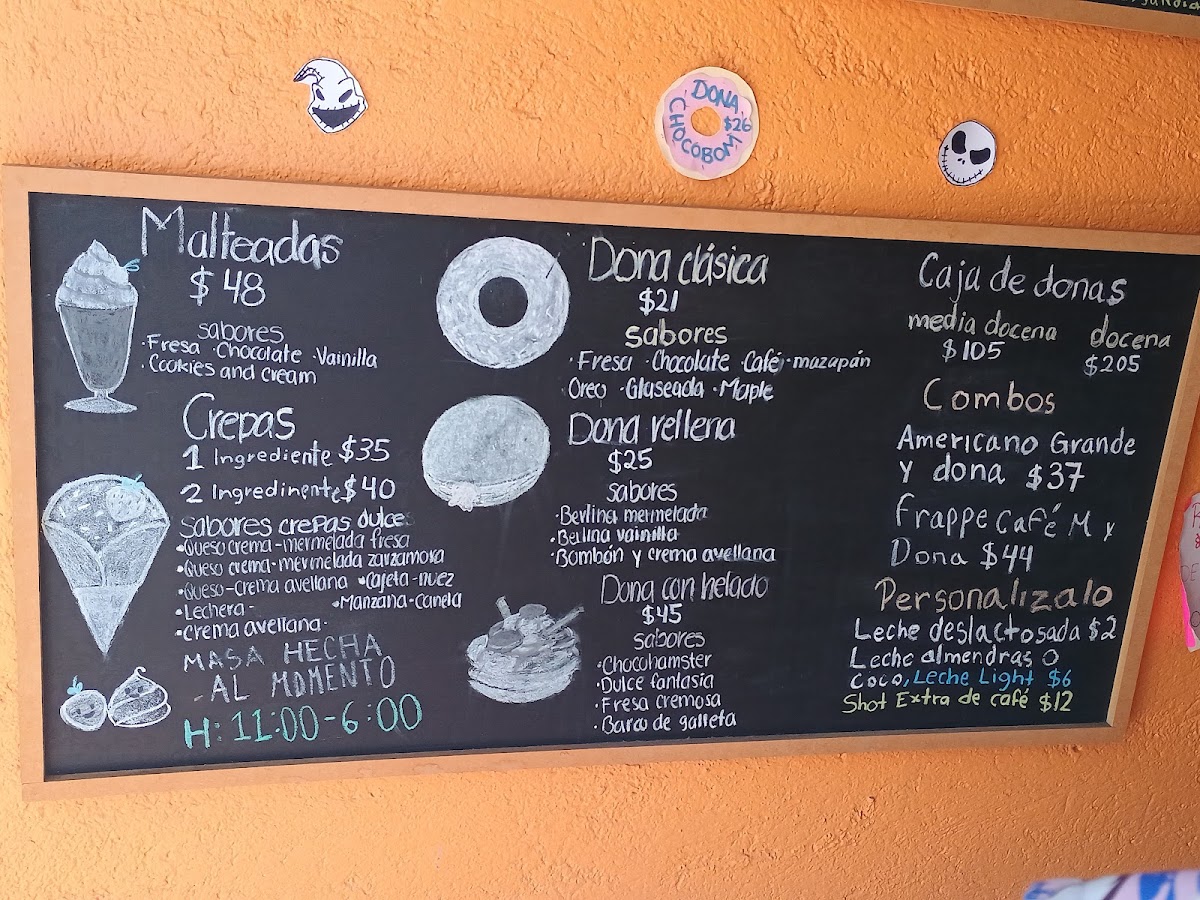 DONA
$26
CHOCOBOM
Malteadas
$48
sabores
·Fresa ·Chocolate ·Vainilla
·Cookies and cream
Crepas
1 Ingrediente $35
2 Ingredinente $40
sabores crepas dulces
•Queso crema-mermelada fresa
•Queso crema-mermelada zarzamora
•Queso-crema avellana •Cajeta-nuez
•Lechera- •Manzana-Canela
•crema avellana·
MASA HECHA
-AL MOMENTO
H: 11:00-6:00
Dona clásica
$21
sabores
·Fresa ·Chocolate ·Café ·mazapán
Oreo ·Glaseada ·Maple
Dona rellena
$25
sabores
·Berlina mermelada
·Berlina vainilla
·Bombón y crema avellana
Dona con helado
$45
sabores
·Chocohamster
·Dulce fantasia
·Fresa cremosa
·Barco de galleta
Caja de donas
media docena docena
$105 $205
Combos
Americano Grande
y dona $37
Frappe Café M y
Dona $44
Personalizalo
Leche deslactosada $2
Leche almendras O
Coco, Leche Light $6
Shot Extra de café $12